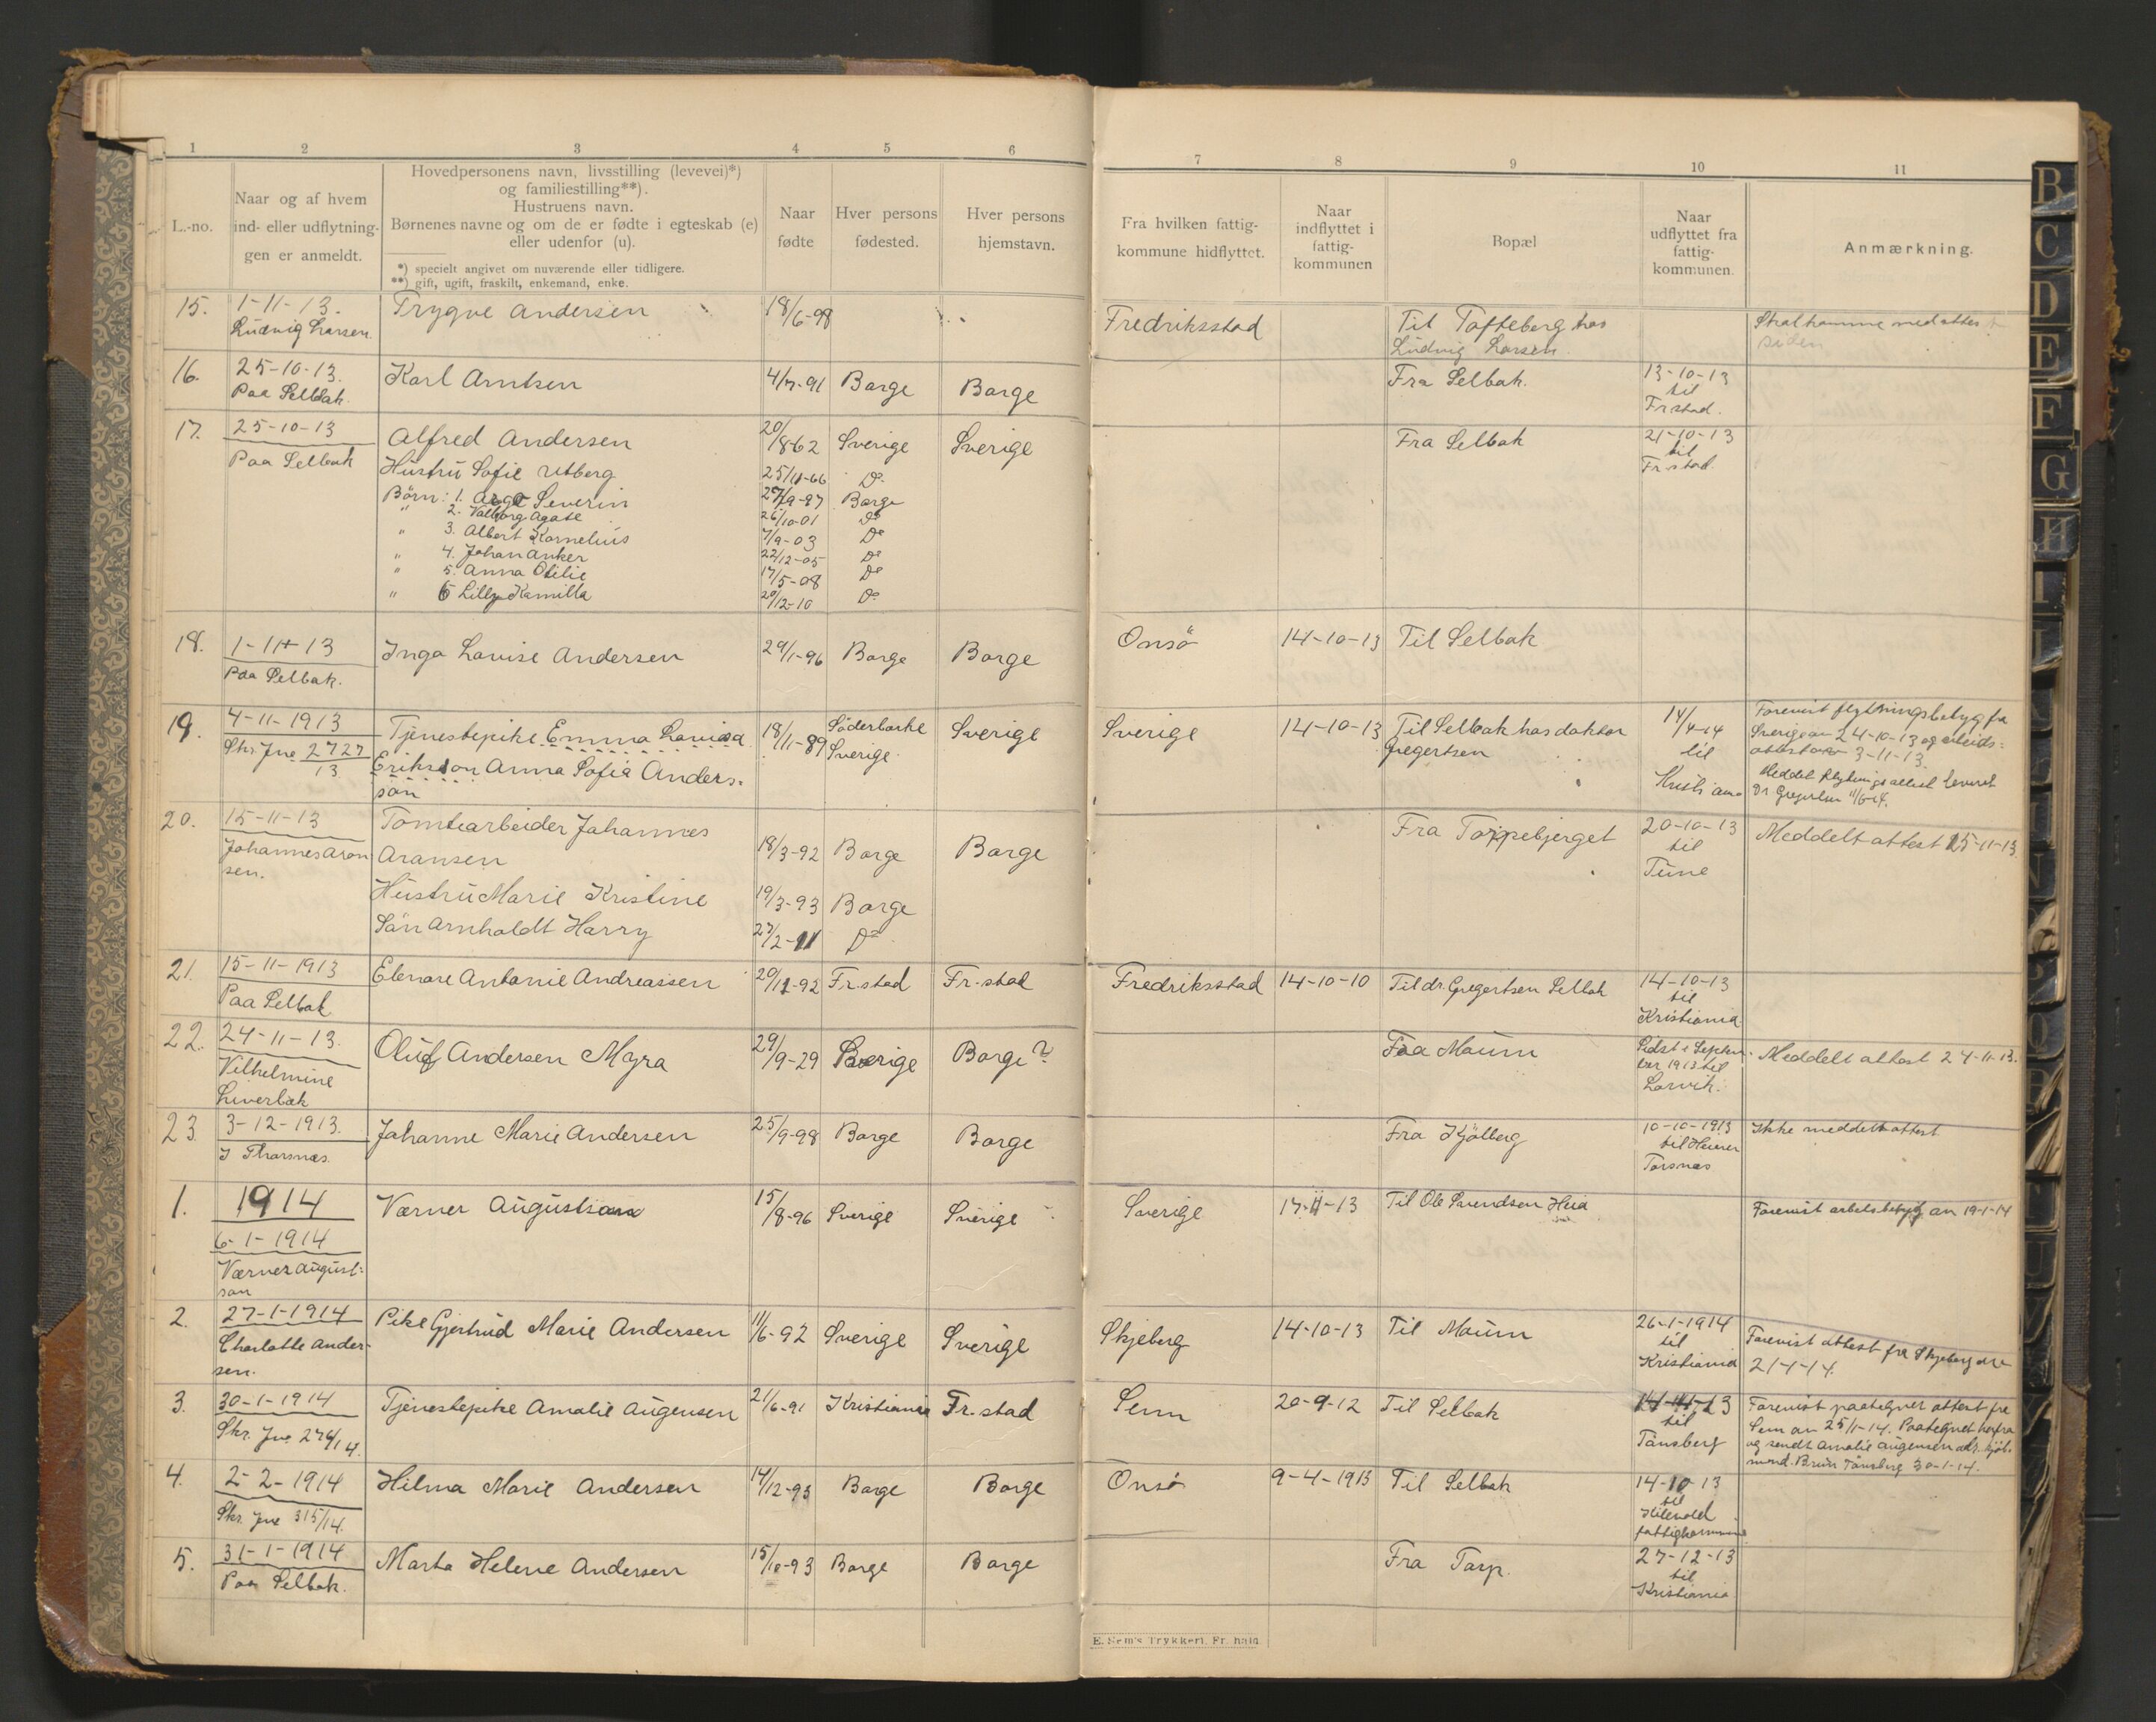 1 2 3 4 5 6 7 8 9 10 11
L.-no.
Naar og af hvem
ind- eller udflytnin-
gen er anmeldt.
Hovedpersonens navn, livsstilling (levevei)*)
og familiestilling**).
Hustruens navn.
Børnenes navne og om de er fødte i egteskab (e)
eller udenfor (u).
*) specielt angivet om nuværende eller tidligere.
**) gift, ugift, fraskilt, enkemand, enke.
Naar
fødte
Hver persons
fødested.
Hver persons
hjemstavn.
Fra hvilken fattig-
kommune hidflyttet.
Naar
indflyttet i
fattig-
kommunen
Bopæl
Naar
udflyttet fra
fattig-
kommunen.
Anmærkning.
15. 1-11-13. Trygve Andersen 18/6-98 Fredriksstad Til Tofteberg hos Skal komme med attest
Ludvig Larsen. Ludvig Larsen. siden
16. 25-10-13. Karl Arntsen 4/7-91 Borge Borge Fra Selbak. 13-10-13
Paa Selbak. til
Frstad.
17. 25-10-13 Alfred Andersen 20/8-62 Sverige Sverige Fra Selbak 21-10-13
Paa Selbak Hustru Sofie Utberg 25/11-66 Do til
Fr.stad.
Börn: 1. Severin 27/9-97 Borge
" 2. Valborg Agate 26/10-01 Do
" 3. Albert Kornelius 7/9-03 Do
" 4. Johan Anker 22/12-05 Do
" 5. Anna Otilie 17/5-08 Do
" 6 Lilly Kamilla 20/12-10 Do
18. 1-11-13 Inga Lovise Andersen 29/1-96 Borge Borge Onsö 14-10-13 Til Selbak
Paa Selbak.
19. 4-11-1913 Tjenestepike Emma Lovisa 18/11-89 Söderbarke Sverige Sverige 14-10-13 Til Selbak hos doktor 14/4-14 Forevist flytningsbetyg fra
Skr. Jno 2727/13 Eriksson Anna Sofia Anders- Sverige. Gregertsen til Sverige av 24-10-13 og arbeids-
son Kristiania attest av 3-11-13.
Meddelt flytningsattest leveret
Dr Gregertsen 11/5-14.
20. 15-11-13 Tomtearbeider Johannes Fra Torpebjerget 20-10-13 Meddelt attest 15-11-13.
Johannes Aron- Aronsen 18/3-92 Borge Borge til
sen. Tune
Hustru Marie Kristine 19/3-93 Borge
Sön Arnholdt Harry 27/2-11 Do
21. 15-11-1913 Elenore Antonie Andreassen 20/12-92 Fr.stad Fr.stad Fredriksstad 14-10-10 Til dr. Gregertsen Selbak 14-10-13
Paa Selbak til
Kristiania
22. 24-11-13. Oluf Andersen Myra 29/9-29 Sverige Borge? Fra Moum Sidst i Septem-
Vilhelmine ber 1913 til Meddelt attest 24-11-13.
Liverbak Larvik.
23. 3-12-1913. Johanne Marie Andersen 25/9-98 Borge Borge Fra Kjölberg 10-10-1913 Ikke meddelt attest
I Thorsnæs. til
Torsnæs
1. 1914 Værner Augustson 15/8-96 Sverige Sverige Sverige 17-11-13 Til Ole Svendsen Heia Forevist arbetsbetyg av 19-1-14
6-1-1914
Værner August-
son
2. 27-1-1914 Pike Gjertrud Marie Andersen 11/6-92 Sverige Sverige Skjeberg 14-10-13 Til Moum 26-1-1914 Forevist attest fra Skjeberg av
Charlotte Ander- til 21-1-14.
sen. Kristiania
3. 30-1-1914 Tjenestepike Amalie Augensen 21/6-91 Kristiania Fr.stad Sem 20-9-12 Til Selbak 14-11-13 Forevist paategnet attest fra
Skr. Jno. 276/14. til Sem av 25/1-14. Paategnet herfra
Tönsberg og sendt Amalie Augensen adr. kjöb-
mand. Bruun Tönsberg 30-1-14.
4. 2-2-1914 Hilma Marie Andersen 14/12-93 Borge Borge Onsö 9-4-1913 Til Selbak 14-10-13
Skr. Jno 315/14. til
fattigkommune
5. 31-1-1914 Marta Helene Andersen 15/10-93 Borge Borge Fra Torp. 27-12-13
Paa Selbak. til
Kristiania
E. Sem's Trykkeri, Fr.hald.
B
C
D
E
F
G
H
I